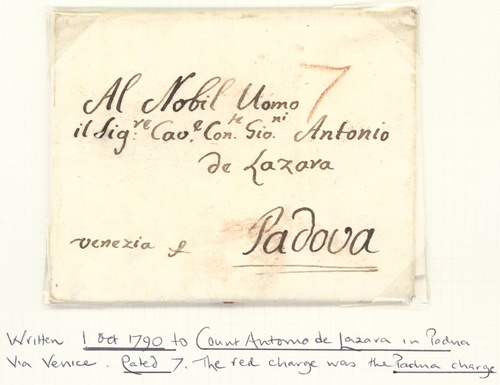 7
Al Nobil Uomo
il Sig.re Cav.e Con.te Gio.ni Antonio
de Lazara
venezia p
Padova
Written 1 Oct 1790 to Count Antonio de Lazara in Padua
Via Venice. Rated 7. The red charge was the Padua charge